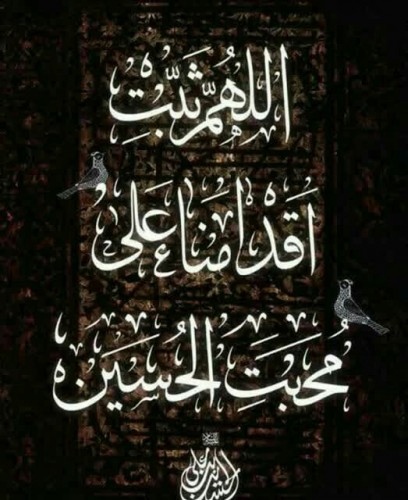 اللهُمَّ ثَبِّت
اَقدامنا عَلىٰ
مُحَبَتِ الحُسَین